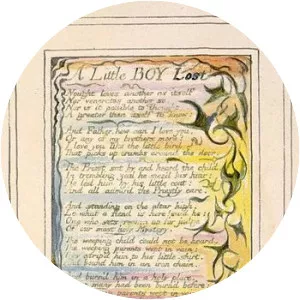 A Little BOY Lost
Nought loves another as itself
Nor venerates another so
Nor is it possible to Thought
A greater than itself to know:
And Father, how can I love you,
Or any of my brothers more?
I love you like the little bird
That picks up crumbs around the door.
The Priest sat by and heard the child.
In trembling zeal he siez'd his hair:
He led him by his little coat:
And all admir'd the Priestly care.
And standing on the altar high,
Lo what a fiend is here! said he:
One who sets reason up for judge
Of our most holy Mystery.
The weeping child could not be heard.
The weeping parents wept in vain:
strip'd him to his little shirt,
bound him in an iron chain.
burn'd him in a holy place,
many had been burn'd before:
parents wept